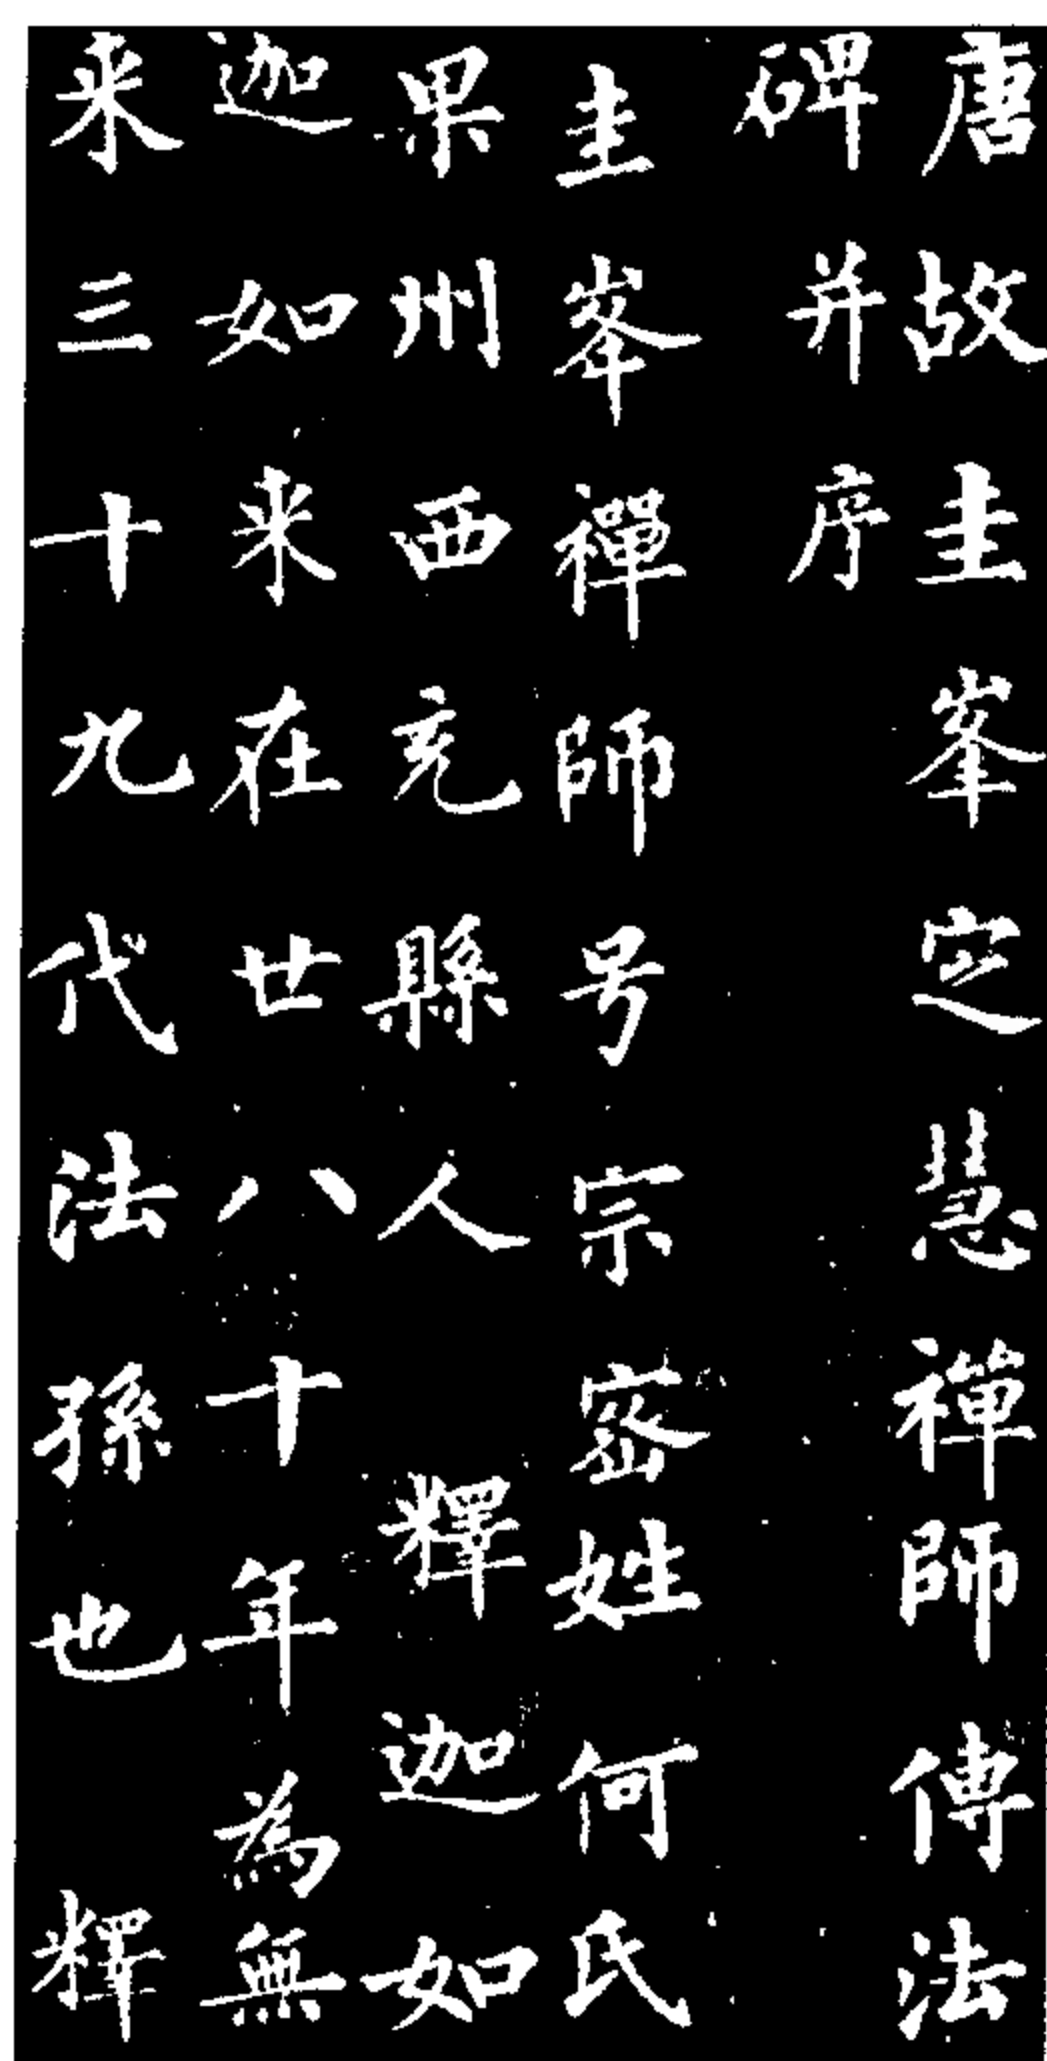 唐故圭峯定慧禪師傳法
碑并序
圭峯禪師号宗密姓何氏
果州西充縣人釋迦如
迦如来在世八十年為無
来三十九代法孫也釋